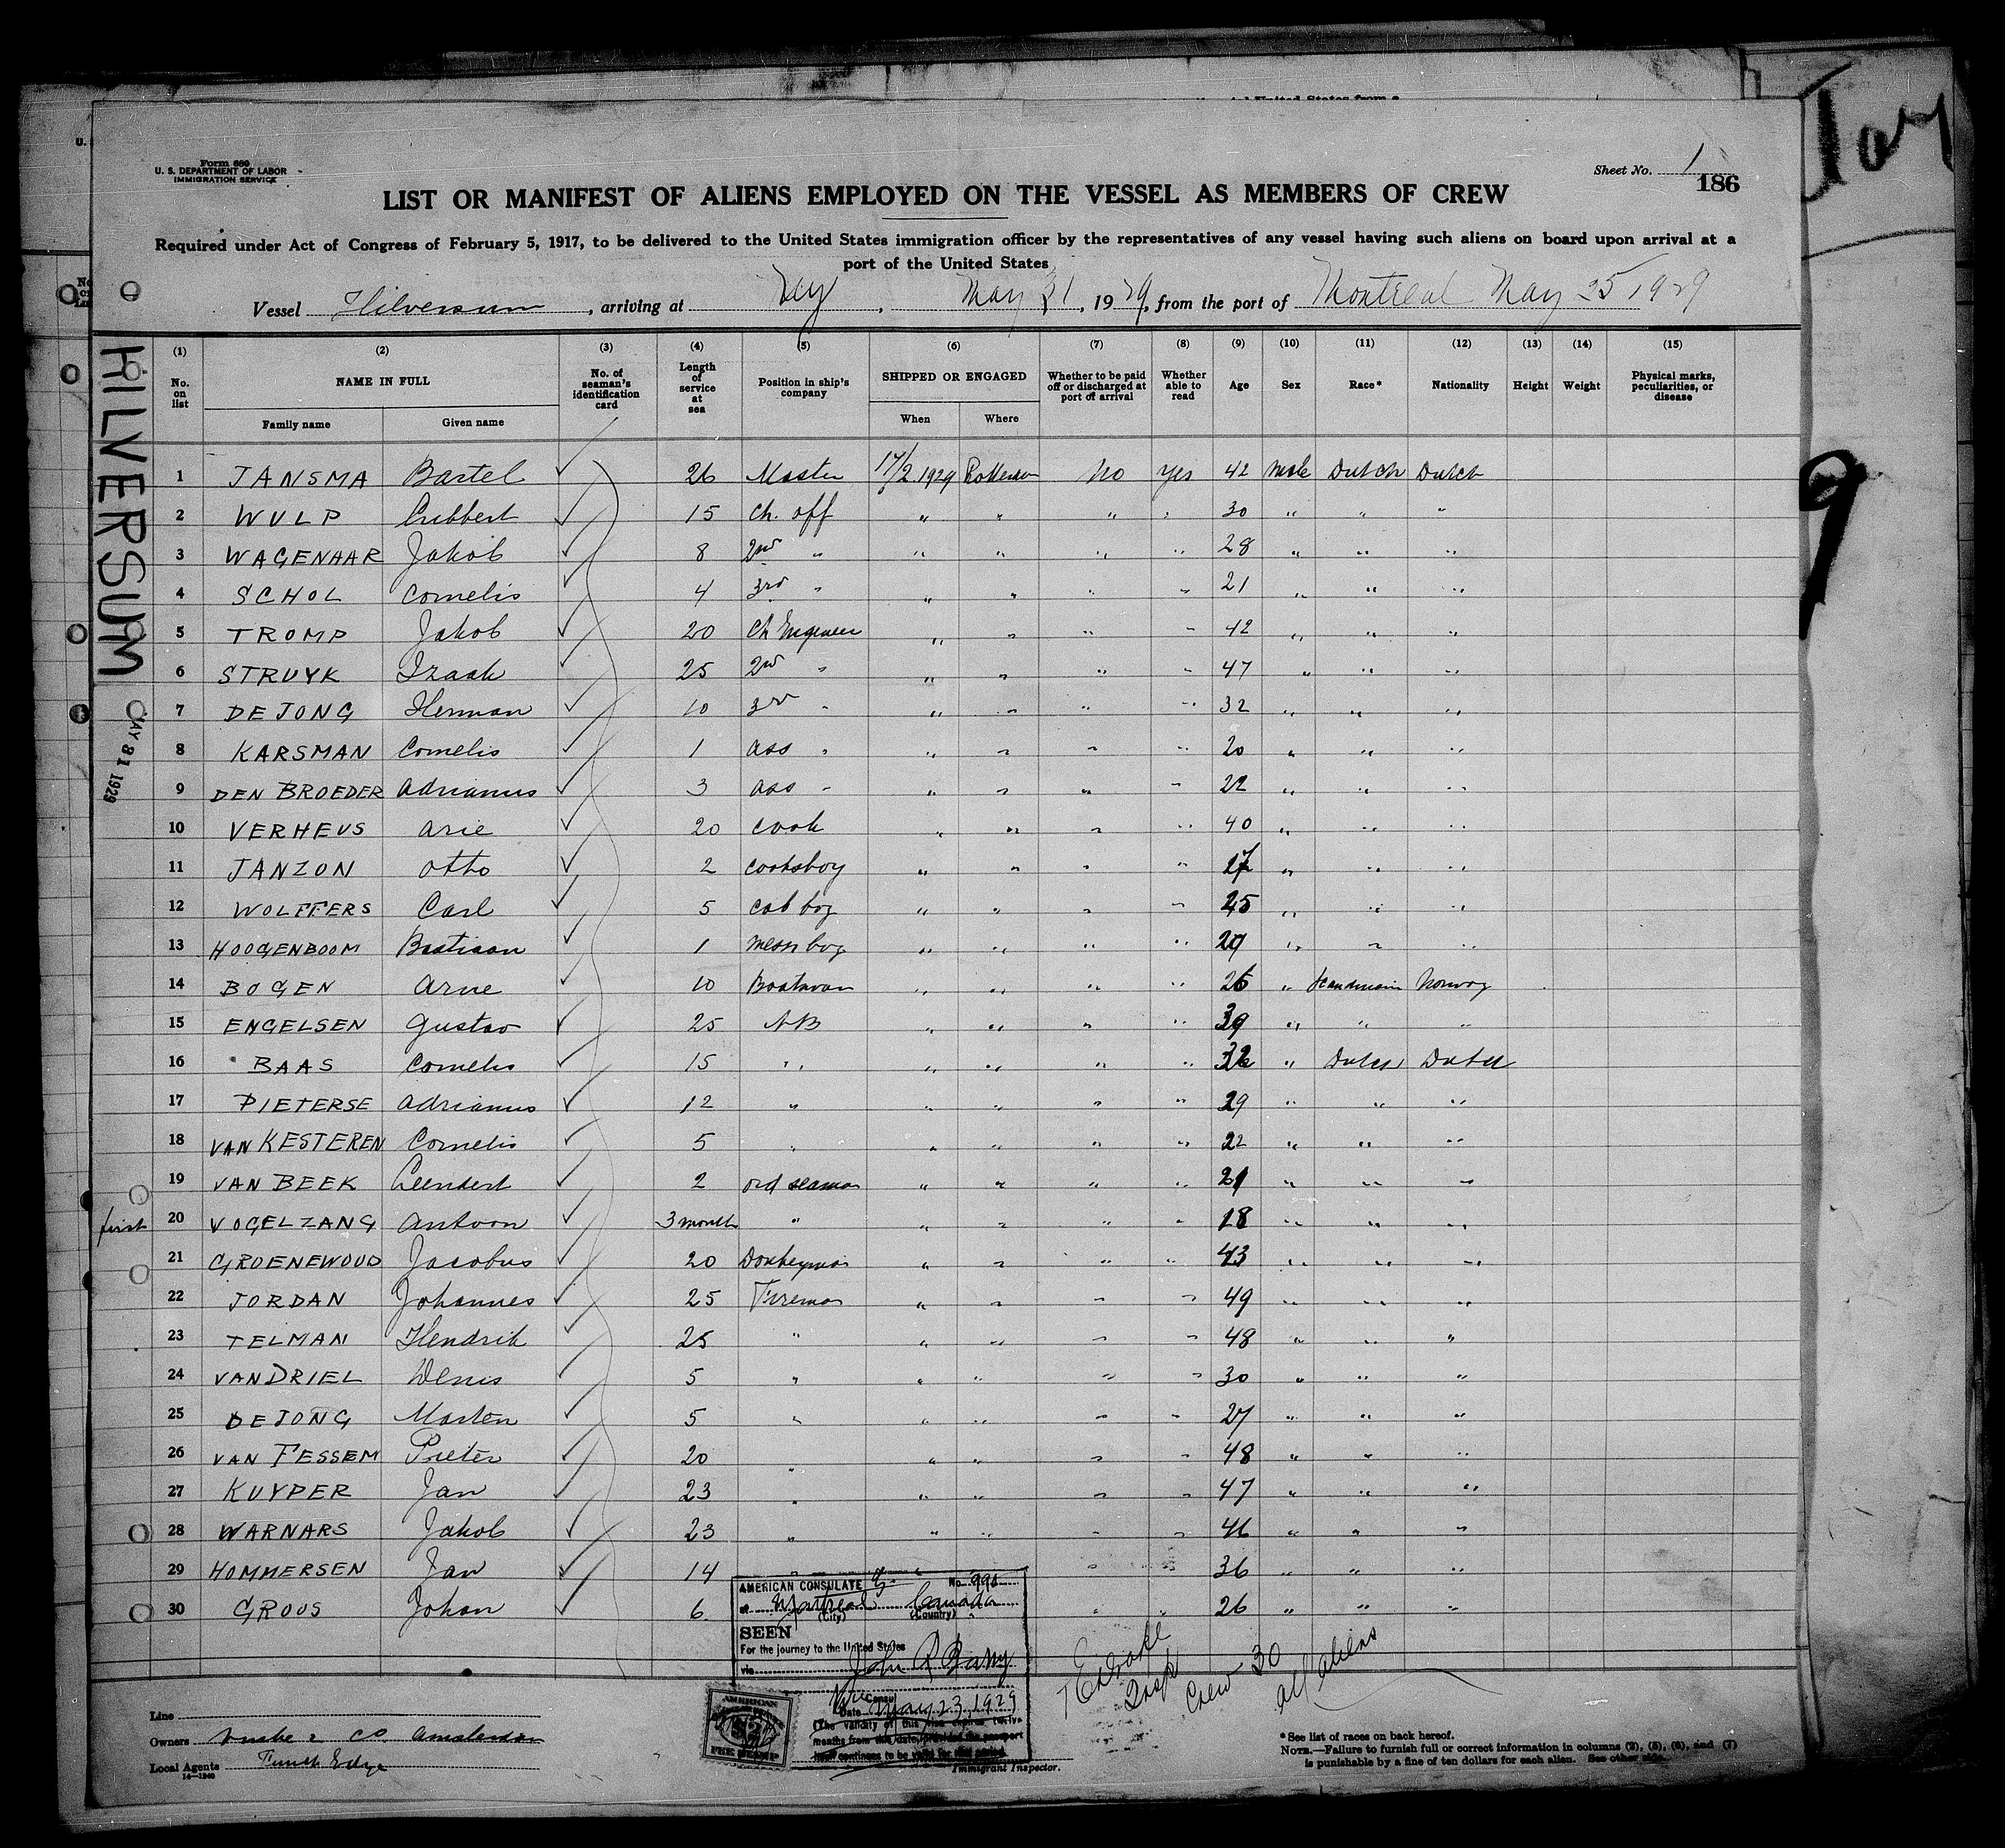 Form 680
U. S. DEPARTMENT OF LABOR
IMMIGRATION SERVICE
Sheet No. 1
186
LIST OR MANIFEST OF ALIENS EMPLOYED ON THE VESSEL AS MEMBERS OF CREW
Required under Act of Congress of February 5, 1917, to be delivered to the United States immigration officer by the representatives of any vessel having such aliens on board upon arrival at a
port of the United States
Vessel Hilversum, arriving at NY, May 31, 1929, from the port of Montreal May 25 1929
HILVERSUM
MAY 31 1929
(1) (2) (3) (4) (5) (6) (7) (8) (9) (10) (11) (12) (13) (14) (15)
No. on list NAME IN FULL Family name Given name No. of seaman's identification card Length of service at sea Position in ship's company SHIPPED OR ENGAGED When Where Whether to be paid off or discharged at port of arrival Whether able to read Age Sex Race* Nationality Height Weight Physical marks, peculiarities, or disease
1 JANSMA Bartel 26 Master 17/2 1929 Rotterdam No Yes 42 Male Dutch Dutch
2 WULP Lubbert 15 Ch. off " " " " 30 " " "
3 WAGENAAR Jakob 8 2nd " " " " " 28 " " "
4 SCHOL Cornelis 4 3rd " " " " " 21 " " "
5 TROMP Jakob 20 Ch Engineer " " " " 42 " " "
6 STRUYK Izaak 25 2nd " " " " " 47 " " "
7 DE JONG Herman 10 3rd " " " " " 32 " " "
8 KARSMAN Cornelis 1 ass " " " " " 20 " " "
9 DEN BROEDER Adrianus 3 ass " " " " " 22 " " "
10 VERHEUS Arie 20 Cook " " " " 40 " " "
11 JANZON Otto 2 cooksboy " " " " " " "
12 WOLFFERS Carl 5 cab boy " " " " 25 " " "
13 HOOGENBOOM Bastiaan 1 mess boy " " " " 29 " " "
14 BOGEN Arne 10 Boatsman " " " " 26 " Scandinavia Norway
15 ENGELSEN Gustav 25 AB " " " " 39 " " "
16 BAAS Cornelis 15 " " " " " " Dutch Dutch
17 PIETERSE Adrianus 12 " " " " " 29 " " "
18 VAN KESTEREN Cornelis 5 " " " " " 22 " " "
19 VAN BEEK Leendert 2 ord seaman " " " " 21 " " "
first 20 VOGELZANG Antoon 3 month " " " " " 18 " " "
21 GROENEWOUD Jacobus 20 Donkeyman " " " " 43 " " "
22 JORDAN Johannes 25 Fireman " " " " 49 " " "
23 TELMAN Hendrik 25 " " " " " 48 " " "
24 VAN DRIEL Denis 5 " " " " " 30 " " "
25 DE JONG Marten 5 " " " " " 27 " " "
26 VAN FESSEM Pieter 20 " " " " " 48 " " "
27 KUYPER Jan 23 " " " " " 47 " " "
28 WARNARS Jakob 23 " " " " " 46 " " "
29 HOMMERSEN Jan 14 " " " 36 " " "
30 GROUS Johan 6 " " 26 " " "
AMERICAN CONSULATE No. 990
at Montreal Canada
(City) (Country)
SEEN
For the journey to the United States
via
John R Barry
Vice Consul
Date May 23, 1929
(The validity of this visa expires twelve
months from this date, provided the passport
continues to be valid for that period
Insp
Crew 30
all aliens
Line
Owners Co Amsterdam
Local Agents Funch Edye
14—1240
Immigrant Inspector.
* See list of races on back hereof.
NOTE.—Failure to furnish full or correct information in columns (2), (5), (6), and (7)
is punishable by a fine of ten dollars for each alien. See other side.